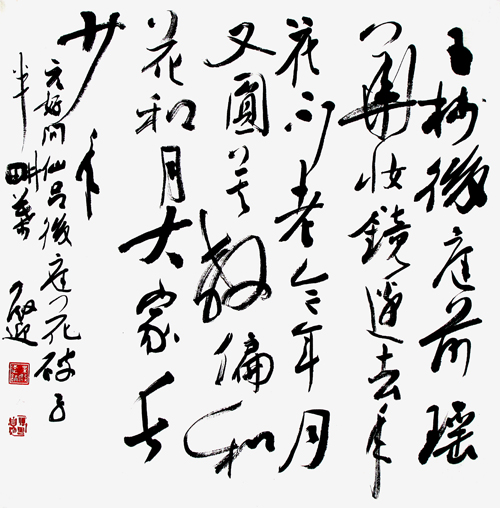 玉树後庭前瑶
華妝鏡邊去年
花不老今年月
又圓莫教偏和
花和月大家长
少年
元好问仙吕後庭花破子
半畊